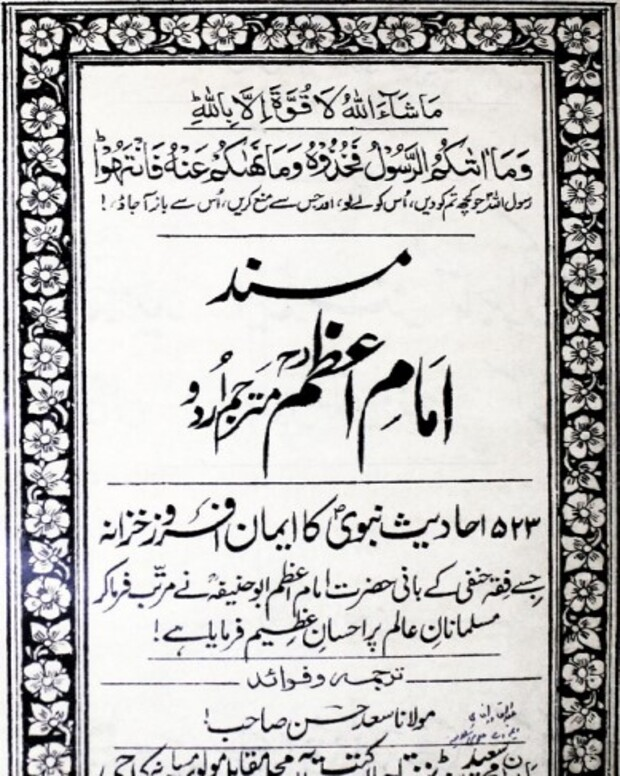 مَا شَآءَ اللهُ لَا قُوَّةَ اِلَّا بِاللهِ
وَمَا اٰتٰىكُمُ الرَّسُوْلُ فَخُذُوْهُ وَمَا نَهٰىكُمْ عَنْهُ فَانْتَهُوْا
رسول اللہؐ جو کچھ تم کو دیں، اُس کو لے لو، اور جس سے منع کریں، اُس سے باز آ جاؤ!
مسند
امامِ اعظمؒ مترجم اُردو
۵۲۳ احادیث نبویؐ کا ایمان افروز خزانہ
جسے فقہ حنفی کے بانی حضرت امام اعظم ابو حنیفہؒ نے مرتّب فرما کر
مسلمانانِ عالم پر احسانِ عظیم فرمایا ہے!
ترجمہ و فوائد
مولانا سعد حسن صاحب!